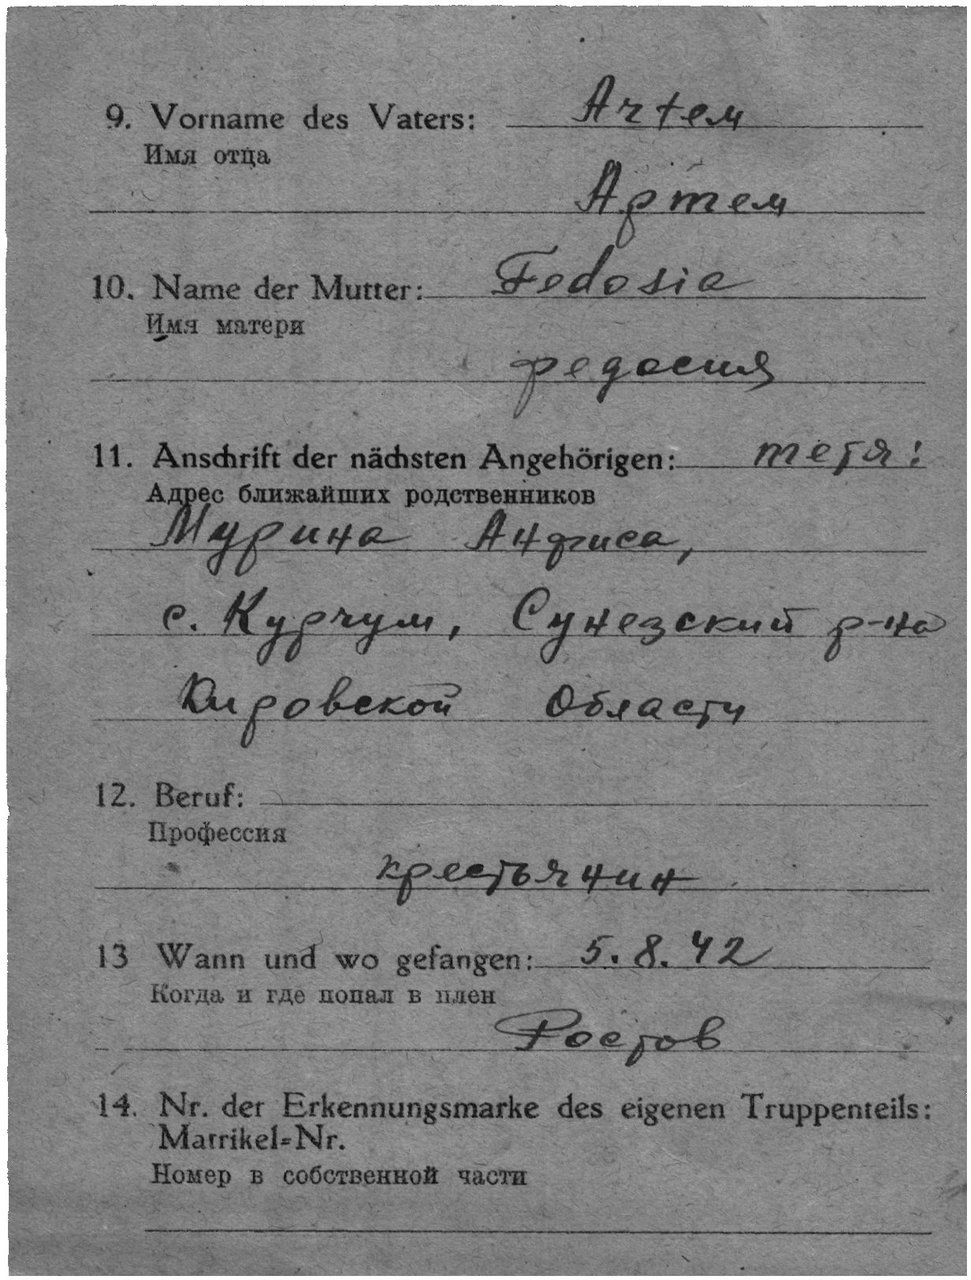 9. Vorname des Vaters: Artem
Имя отца
Артем
10. Name der Mutter: Fedosia
Имя матери
федосия
11. Anschrift der nächsten Angehörigen: тетя:
Адрес ближайших родственников
Мурина Анфиса,
с. Курчум, Сунезский р-на
Кировской области
12. Beruf:
Профессия
крестьянин
13 Wann und wo gefangen: 5.8.42
Когда и где попал в плен
Ростов
14. Nr. der Erkennungsmarke des eigenen Truppenteils:
Matrikel=Nr.
Номер в собственной части